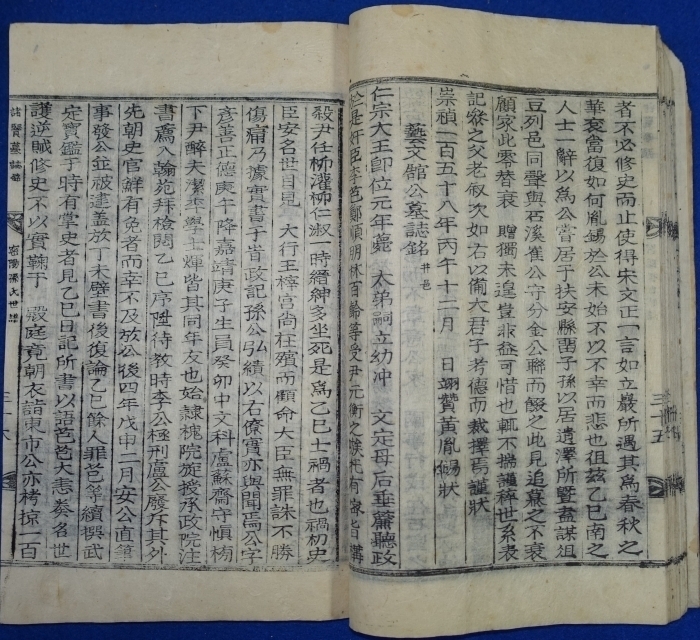 者不必修史而止使得宋文正一言如立巖所遇其爲春秋之
華袞當復如何胤錫於公未始不以不幸而悲也徂玆乙巳南之
人士一辭以爲公嘗居于扶安縣畱子孫以居遺澤所曁盍謀俎
豆列邑同聲與石溪崔公守分金公聯而醊之此見追慕之不衰
顧家此零替衰贈獨未遑豈非益可惜也輒不揣謹稡世系表
記叅之父老叙次如右以備大君子考德而裁擇焉謹狀
崇禎一百五十八年丙午十二月 日翊贊黃胤錫狀
藝文館公墓誌銘 幷序
仁宗大王卽位元年薨 太弟嗣立幼冲 文定母后垂簾聽政
於是奸臣李芑鄭順朋林百齡等受尹元衡之 有 皆
殺尹任柳灌柳仁淑一時縉紳多坐死是爲乙巳士禍者也禍初史
臣安名世目見 大行王梓宮尙在殯而顧命大臣無罪誅不勝
傷痛乃據實書于旹政記孫公弘績以右僚實亦與聞焉公字
彥善正德庚午降嘉靖庚子生員癸卯中文科盧蘇齋守愼榜
下尹醉夫潔李學士煇皆其同年友也始隸槐院旋授承政院注
書薦入翰苑拜檢閱乙巳序陞待敎時李公極刑盧公廢斥其外
先朝史官鮮有免者而幸不及放公後四年戊申二月安公直筆
事發公並被逮盖放丁未壁書後復論乙巳餘人罪芑等續撰武
定寶鑑于時有掌史者見乙巳日記所書以語芑芑大恚奏名世
護逆賊修史不以實鞫于 殿庭竟朝衣詣東市公亦栲掠一百
諸賢墓誌卷
密陽孫氏世譜
三十六
三十五